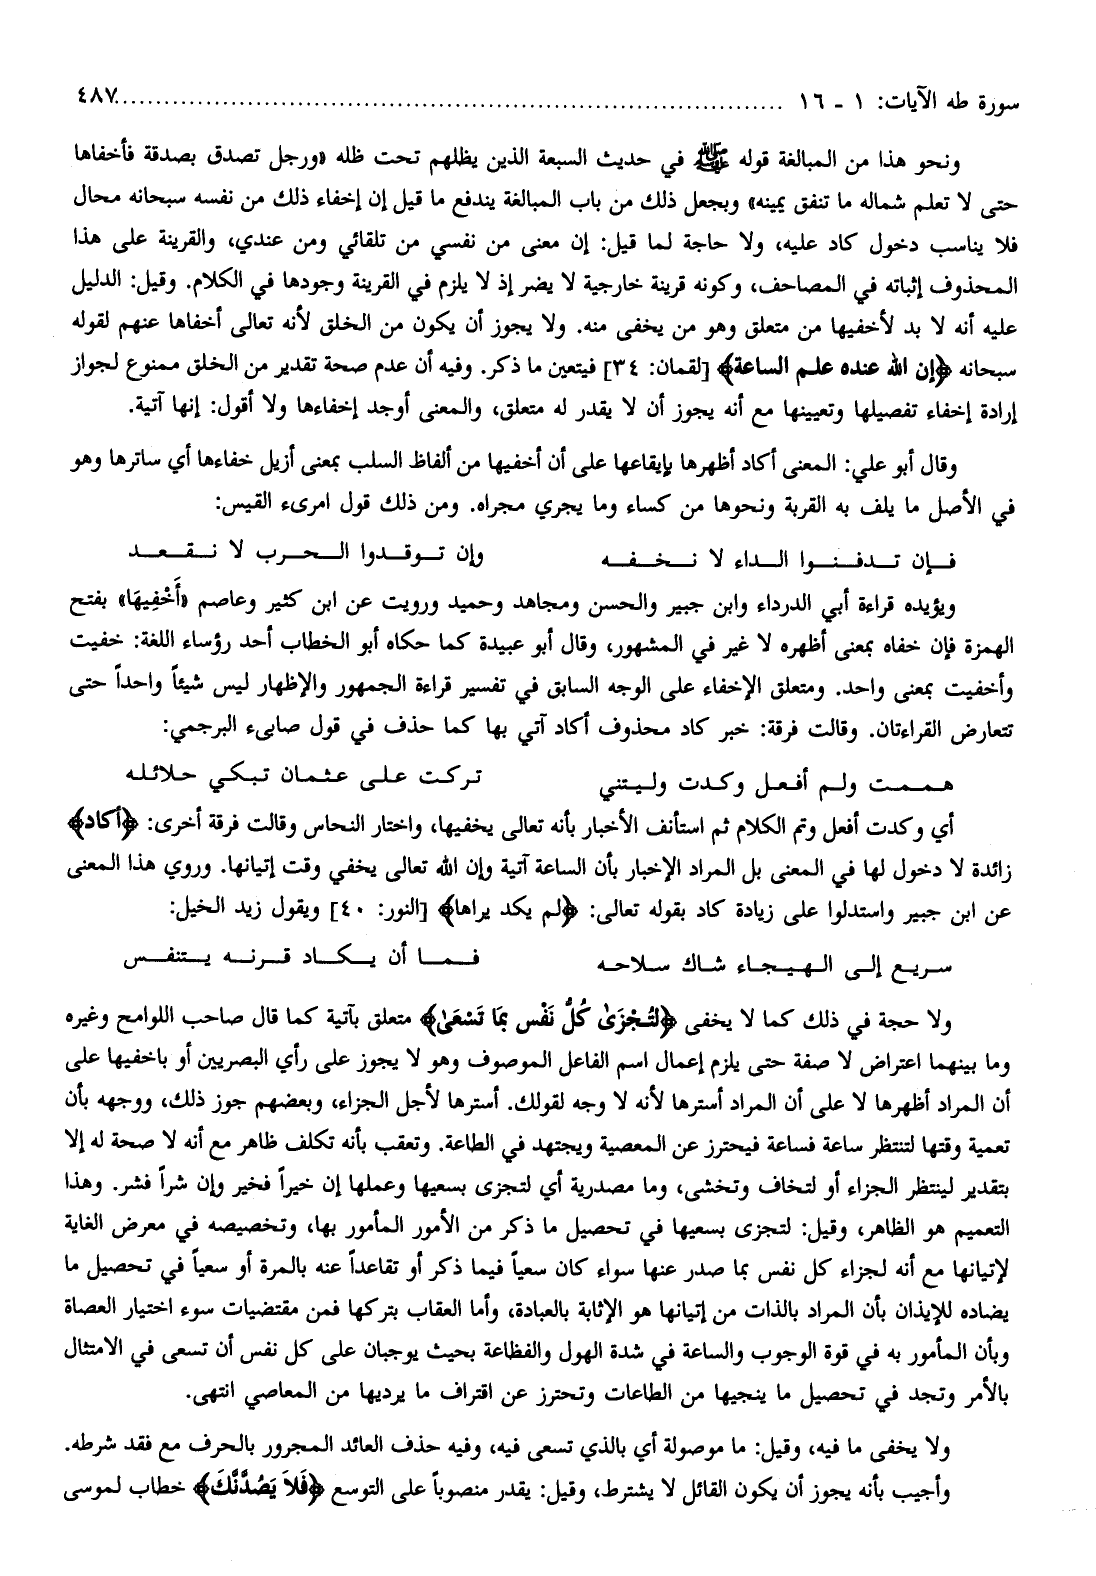 سورة طه الآيات: ١ - ١٦ ................................................................................ ٤٨٧
ونحو هذا من المبالغة قوله ﷺ في حديث السبعة الذين يظلهم تحت ظله «ورجل تصدق بصدقة فأخفاها
حتى لا تعلم شماله ما تنفق يمينه» وبجعل ذلك من باب المبالغة يندفع ما قيل إن إخفاء ذلك من نفسه سبحانه محال
فلا يناسب دخول كاد عليه، ولا حاجة لما قيل: إن معنى من نفسي من تلقائي ومن عندي، والقرينة على هذا
المحذوف إثباته في المصاحف، وكونه قرينة خارجية لا يضر إذ لا يلزم في القرينة وجودها في الكلام. وقيل: الدليل
عليه أنه لا بد لأخفيها من متعلق وهو من يخفى منه. ولا يجوز أن يكون من الخلق لأنه تعالى أخفاها عنهم لقوله
سبحانه ﴿إن الله عنده علم الساعة﴾ [لقمان: ٣٤] فيتعين ما ذكر. وفيه أن عدم صحة تقدير من الخلق ممنوع لجواز
إرادة إخفاء تفصيلها وتعيينها مع أنه يجوز أن لا يقدر له متعلق، والمعنى أوجد إخفاءها ولا أقول: إنها آتية.
وقال أبو علي: المعنى أكاد أظهرها بإيقاعها على أن أخفيها من ألفاظ السلب بمعنى أزيل خفاءها أي ساترها وهو
في الأصل ما يلف به القربة ونحوها من كساء وما يجري مجراه. ومن ذلك قول امرىء القيس:
فـإن تـدفـنـوا الـداء لا نـخـفـه وإن تـوقـدوا الـحـرب لا نـقـعـد
ويؤيده قراءة أبي الدرداء وابن جبير والحسن ومجاهد وحميد ورويت عن ابن كثير وعاصم «أَخْفِيهَا» بفتح
الهمزة فإن خفاه بمعنى أظهره لا غير في المشهور، وقال أبو عبيدة كما حكاه أبو الخطاب أحد رؤساء اللغة: خفيت
وأخفيت بمعنى واحد. ومتعلق الإخفاء على الوجه السابق في تفسير قراءة الجمهور والإظهار ليس شيئاً واحداً حتى
تتعارض القراءتان. وقالت فرقة: خبر كاد محذوف أكاد آتي بها كما حذف في قول صابىء البرجمي:
هـمـمـت ولـم أفـعـل وكـدت ولـيـتني تـركـت عـلـى عـثـمـان تـبـكي حـلائـلـه
أي وكدت أفعل وتم الكلام ثم استأنف الأخبار بأنه تعالى يخفيها، واختار النحاس وقالت فرقة أخرى: ﴿أكاد﴾
زائدة لا دخول لها في المعنى بل المراد الإخبار بأن الساعة آتية وإن الله تعالى يخفي وقت إتيانها. وروي هذا المعنى
عن ابن جبير واستدلوا على زيادة كاد بقوله تعالى: ﴿لم يكد يراها﴾ [النور: ٤٠] ويقول زيد الخيل:
سـريـع إلـى الـهـيـجـاء شـاك سـلاحـه فـمـا أن يـكـاد قـرنـه يـتـنـفـس
ولا حجة في ذلك كما لا يخفى ﴿لتُجْزَىٰ كُلُّ نَفْس بمَا تَسْعَىٰ﴾ متعلق بآتية كما قال صاحب اللوامح وغيره
وما بينهما اعتراض لا صفة حتى يلزم إعمال اسم الفاعل الموصوف وهو لا يجوز على رأي البصريين أو باخفيها على
أن المراد أظهرها لا على أن المراد أسترها لأنه لا وجه لقولك. أسترها لأجل الجزاء، وبعضهم جوز ذلك، ووجهه بأن
تعمية وقتها لتنتظر ساعة فساعة فيحترز عن المعصية ويجتهد في الطاعة. وتعقب بأنه تكلف ظاهر مع أنه لا صحة له إلا
بتقدير لينتظر الجزاء أو لتخاف وتخشى، وما مصدرية أي لتجزى بسعيها وعملها إن خيراً فخير وإن شراً فشر. وهذا
التعميم هو الظاهر، وقيل: لتجزى بسعيها في تحصيل ما ذكر من الأمور المأمور بها، وتخصيصه في معرض الغاية
لإتيانها مع أنه لجزاء كل نفس بما صدر عنها سواء كان سعياً فيما ذكر أو تقاعداً عنه بالمرة أو سعياً في تحصيل ما
يضاده للإيذان بأن المراد بالذات من إتيانها هو الإثابة بالعبادة، وأما العقاب بتركها فمن مقتضيات سوء اختيار العصاة
وبأن المأمور به في قوة الوجوب والساعة في شدة الهول والفظاعة بحيث يوجبان على كل نفس أن تسعى في الامتثال
بالأمر وتجد في تحصيل ما ينجيها من الطاعات وتحترز عن اقتراف ما يرديها من المعاصي انتهى.
ولا يخفى ما فيه، وقيل: ما موصولة أي بالذي تسعى فيه، وفيه حذف العائد المجرور بالحرف مع فقد شرطه.
وأجيب بأنه يجوز أن يكون القائل لا يشترط، وقيل: يقدر منصوباً على التوسع ﴿فَلاَ يَصُدَّنَّكَ﴾ خطاب لموسى